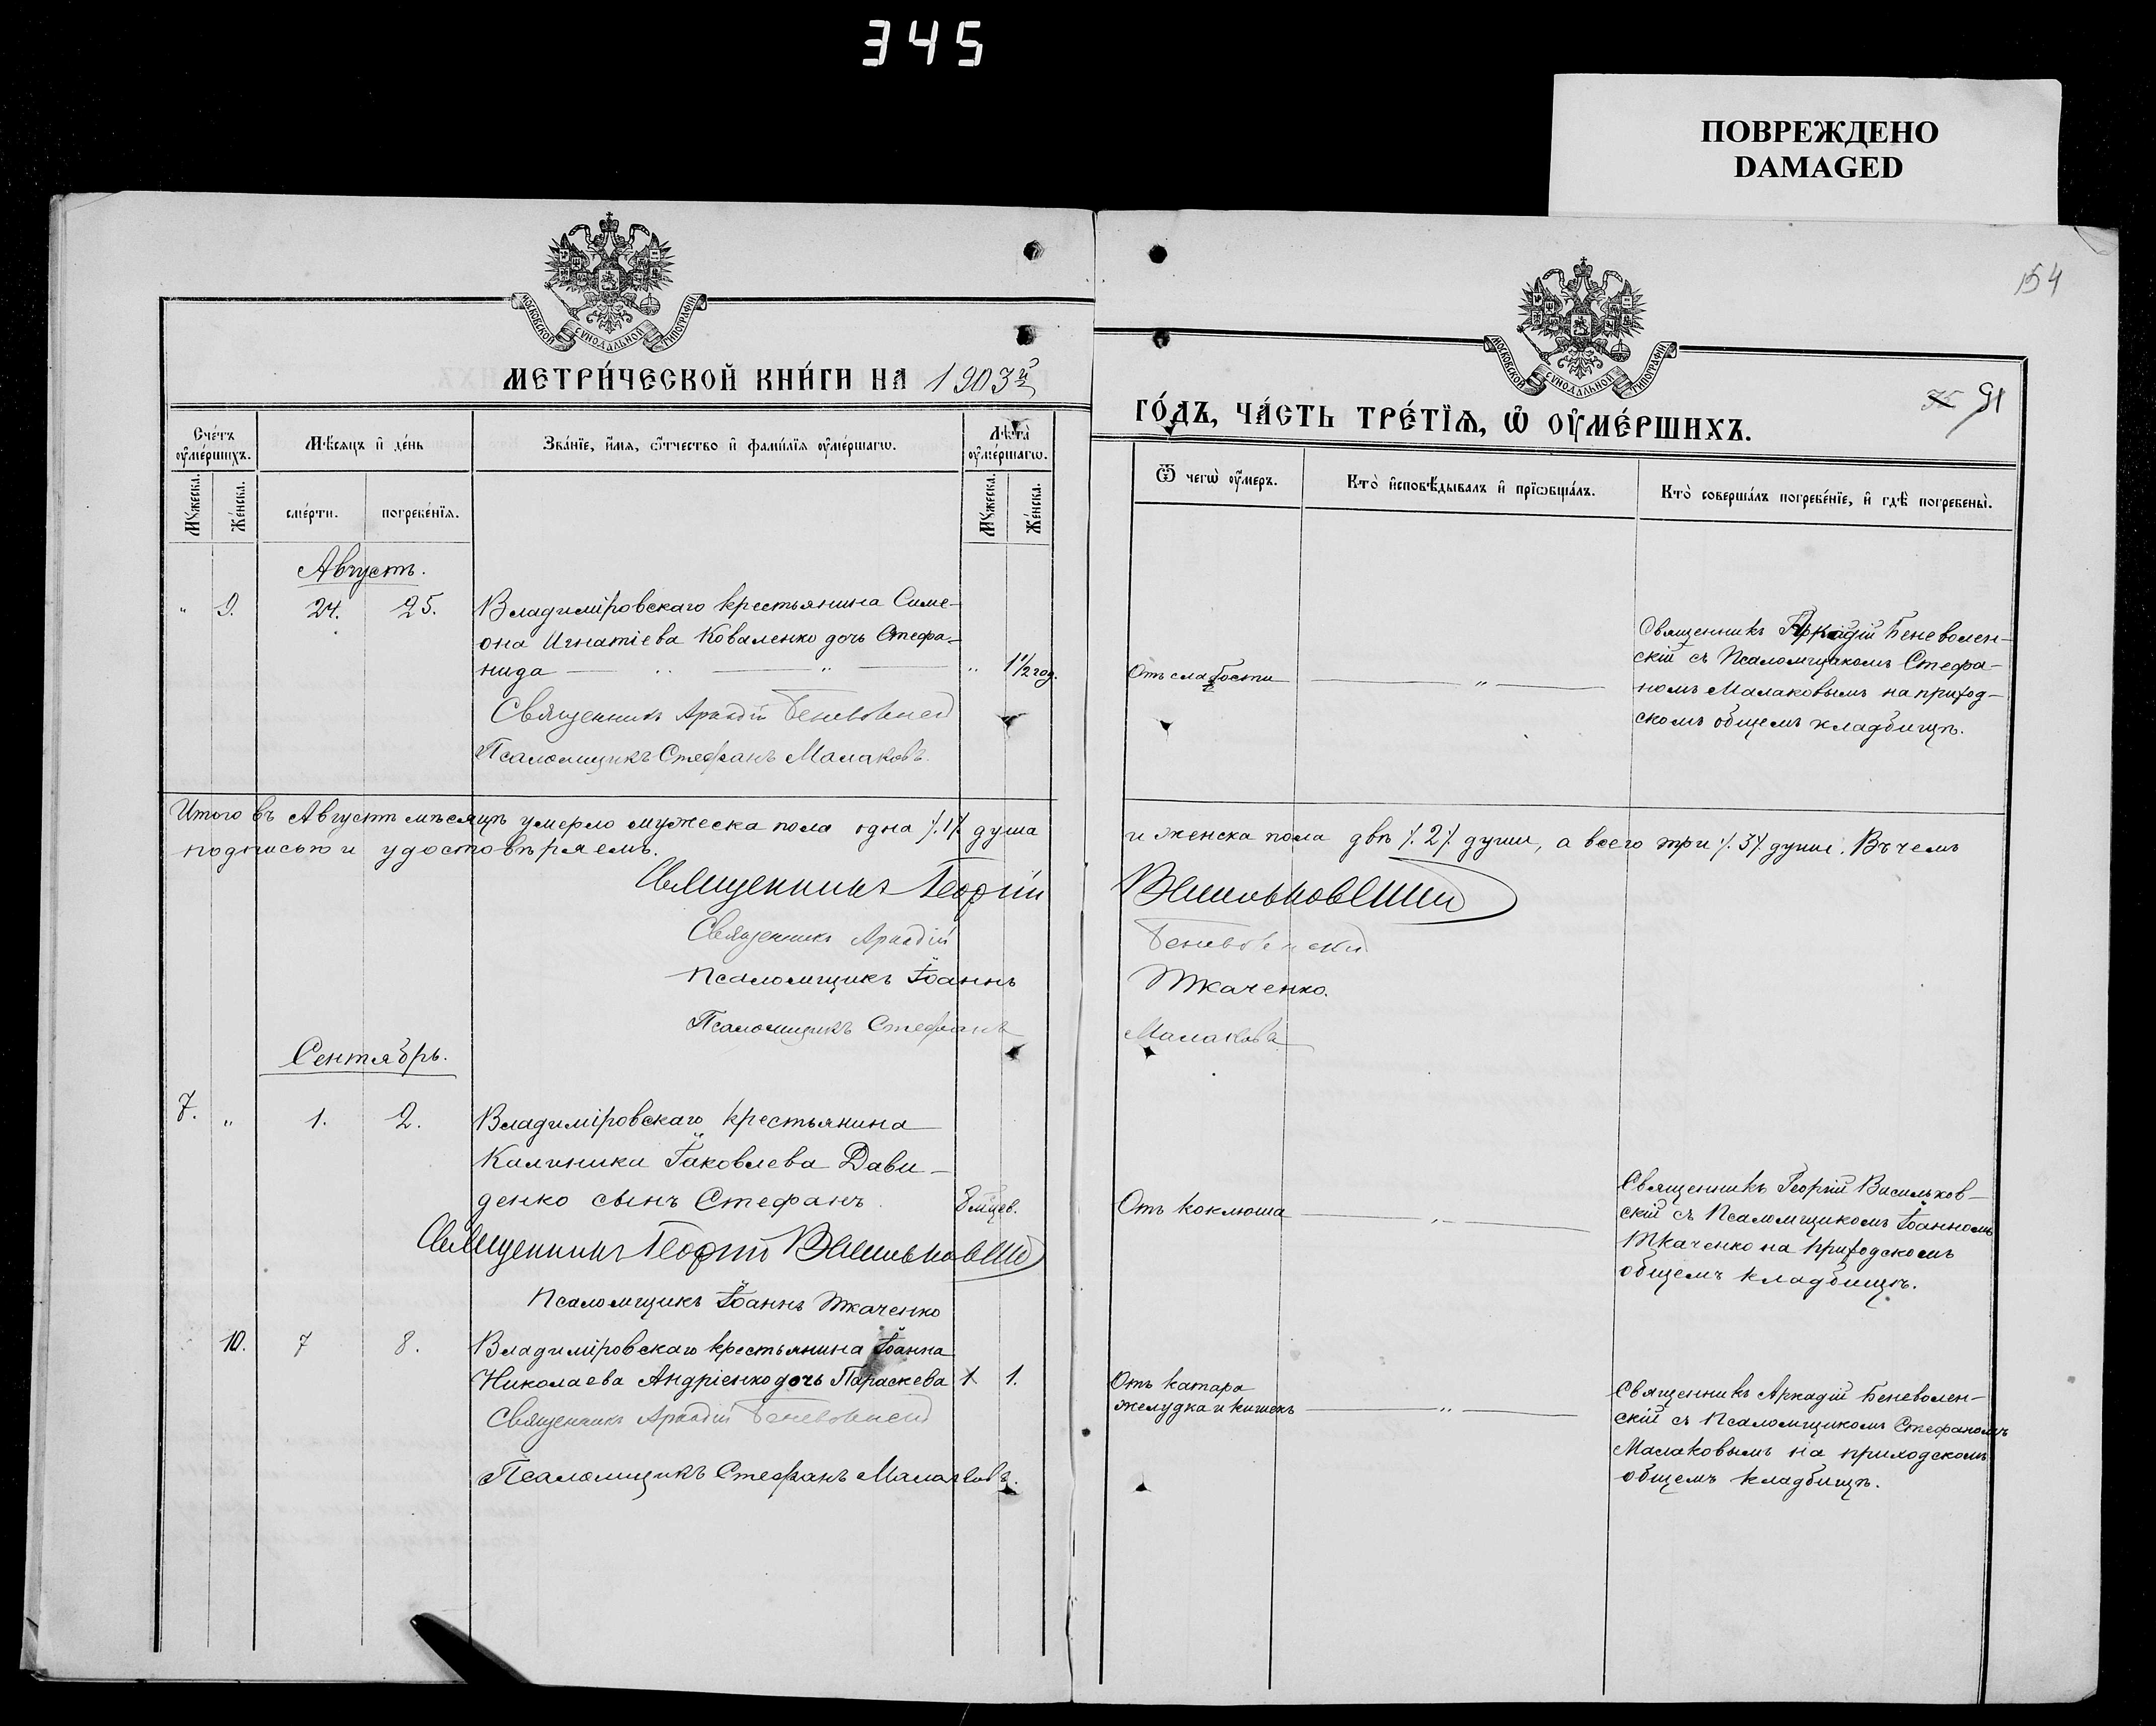 345
ПОВРЕЖДЕНО
DAMAGED
154
МОСКОВСКОЙ СУНОДАЛЬНОЙ ТИПОГРАФІИ
МЕТРИ́ЧЕСКОЙ КНИ́ГИ НА 1903й
Сче́тъ ᲂу҆ме́ршихъ.
Мѣ́сѧцъ и҆ де́нь
Зва́нїе, и҆́мѧ, ѻ҆́тчество и҆ фами́лїѧ ᲂу҆ме́ршагѡ.
Лѣ́та ᲂу҆ме́ршагѡ.
Мꙋ́жеска.
Же́нска.
сме́рти.
погребе́нїѧ.
Мꙋ́жеска.
Же́нска.
Августъ.
" 9. 24. 25. Владиміровскаго крестьянина Симе-
она Игнатіева Коваленко дочь Стефа-
нида — " — " — " 1½ год.
Священникъ Аркадій Беневоленскій
Псаломщикъ Стефанъ Малаковъ.
Итого въ Августѣ мѣсяцѣ умерло мужеска пола одна /.1/. душа
подписью и удостовѣряемъ.
Священникъ Георгій
Священникъ Аркадій
Псаломщикъ Іоаннъ
Псаломщикъ Стефанъ
Сентябрь.
7. " 1. 2. Владиміровскаго крестьянина
Калиники Іаковлева Дави-
денко сынъ Стефанъ. 8 мѣцев.
Священникъ Георгій Васильковскій
Псаломщикъ Іоаннъ Ткаченко
10. 7 8. Владиміровскаго крестьянина Іоанна
Николаева Андріенко дочь Параскева 1 1.
Священникъ Аркадій Беневоленскій
Псаломщикъ Стефанъ Малаковъ.
МОСКОВСКОЙ СУНОДАЛЬНОЙ ТИПОГРАФІИ
91
ГО́ДЪ, ЧА́СТЬ ТРЕ́ТЇѦ, Ѡ҆ ОУ҆МЕ́РШИХЪ.
Ѿ чегѡ̀ ᲂу҆́меръ.
Кто̀ и҆сповѣ́дывалъ и҆ прїѡбща́лъ.
Кто̀ соверша́лъ погребе́нїе, и҆ гдѣ̀ погребены̀.
Священникъ Аркадій Беневолен-
скій съ Псаломщикомъ Стефа-
Отъ слабости — " —
номъ Малаковымъ на приход-
скомъ общемъ кладбищѣ.
и женска пола двѣ /.2/. души, а всего три /.3/. души. Въ чемъ
Васильковскій
Беневоленскій
Ткаченко.
Малаковъ
Священникъ Георгій Васильков-
Отъ коклюша — " —
скій съ Псаломщикомъ Іоанномъ
Ткаченко на приходскомъ
общемъ кладбищѣ.
Отъ катара
желудка и кишекъ — " —
Священникъ Аркадій Беневолен-
скій съ Псаломщикомъ Стефаномъ
Малаковымъ на приходскомъ
общемъ кладбищѣ.